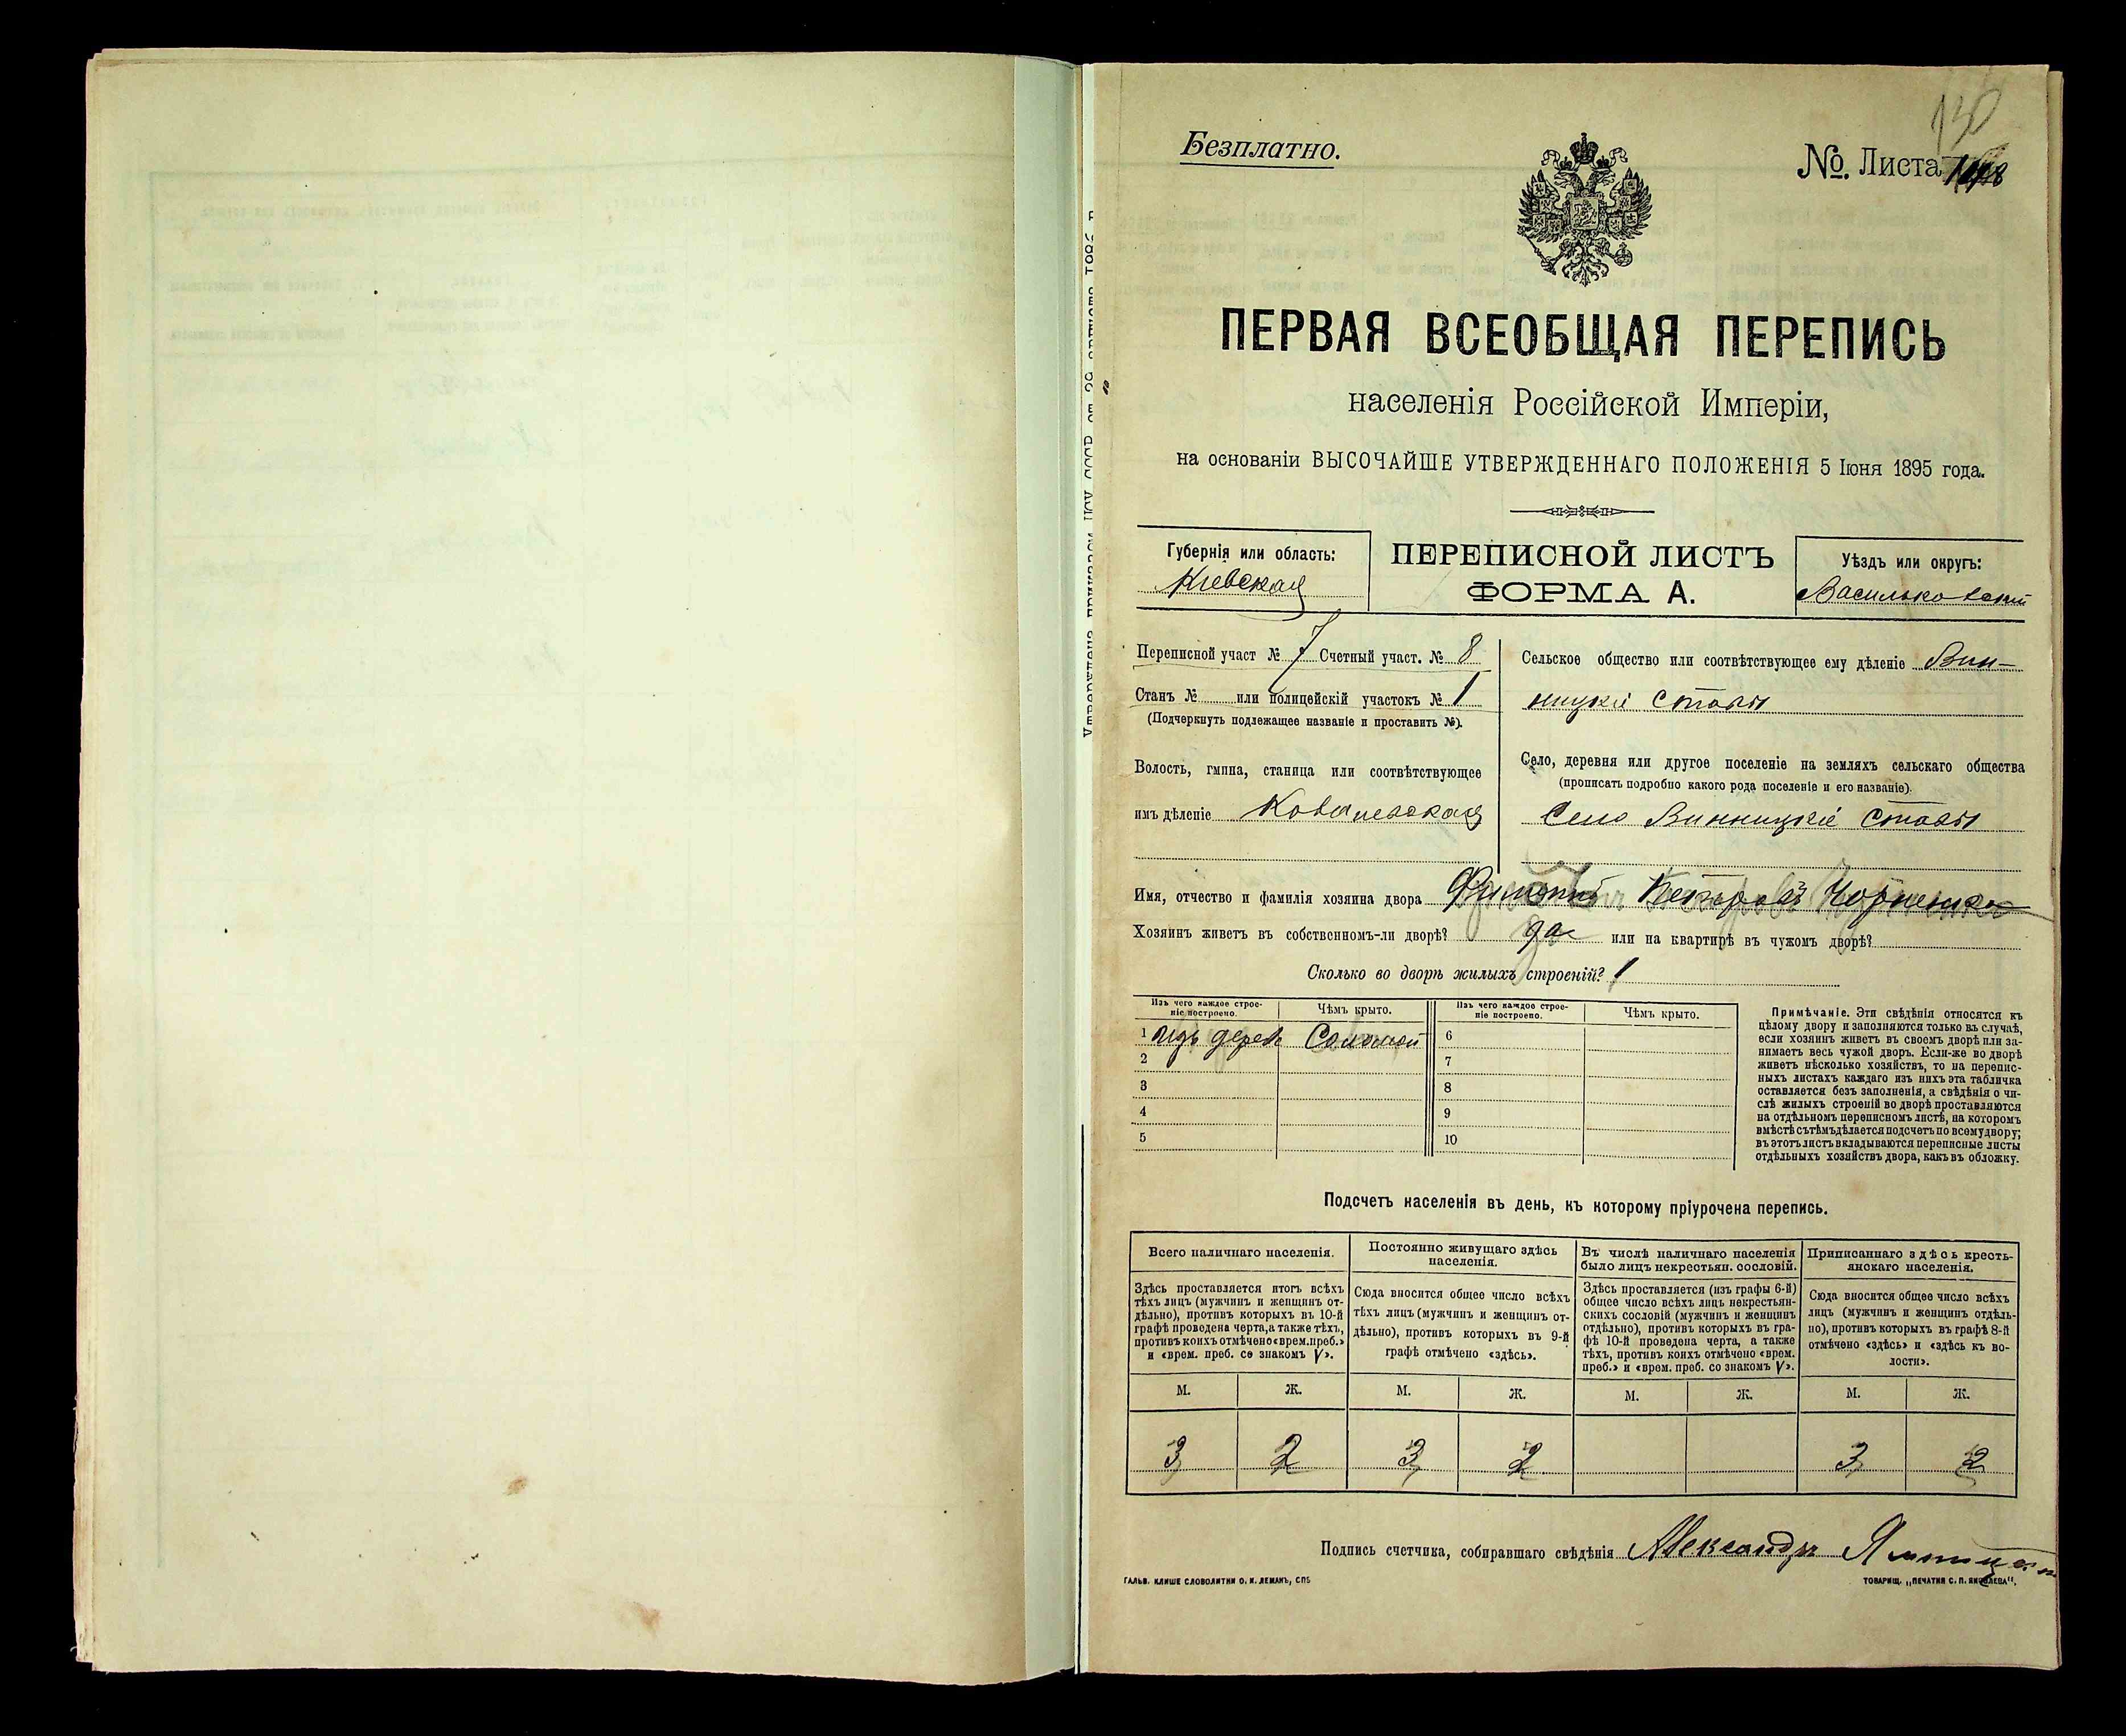 130
Безплатно.
№. Листа
ПЕРВАЯ ВСЕОБЩАЯ ПЕРЕПИСЬ
населенія Россійской Имперіи,
на основаніи ВЫСОЧАЙШЕ УТВЕРЖДЕННАГО ПОЛОЖЕНІЯ 5 Іюня 1895 года.
Губернія или область:
Кіевская
ПЕРЕПИСНОЙ ЛИСТЪ
ФОРМА А.
Уѣздъ или округъ:
Васильковскій
Переписной участ № 7 Счетный участ. № 8
Станъ № или полицейскій участокъ № 1
(Подчеркнуть подлежащее названіе и проставить №).
Волость, гмина, станица или соотвѣтствующее
имъ дѣленіе Ковалевская
Сельское общество или соотвѣтствующее ему дѣленіе Вин-
ницкіе Ставы
Село, деревня или другое поселеніе на земляхъ сельскаго общества
(прописать подробно какого рода поселеніе и его названіе).
Село Винницкіе Ставы
Имя, отчество и фамилія хозяина двора Петровъ Чорненко
Хозяинъ живетъ въ собственномъ-ли дворѣ? да или на квартирѣ въ чужомъ дворѣ?
Сколько во дворѣ жилыхъ строеній? 1
Изъ чего каждое строе-
ніе построено.
Чѣмъ крыто.
Изъ чего каждое строе-
ніе построено.
Чѣмъ крыто.
1 изъ дерева Соломой
2
3
4
5
6
7
8
9
10
Примѣчаніе. Эти свѣдѣнія относятся къ
цѣлому двору и заполняются только въ случаѣ,
если хозяинъ живетъ въ своемъ дворѣ или за-
нимаетъ весь чужой дворъ. Если-же во дворѣ
живетъ нѣсколько хозяйствъ, то на перепис-
ныхъ листахъ каждаго изъ нихъ эта табличка
оставляется безъ заполненія, а свѣдѣнія о чи-
слѣ жилыхъ строеній во дворѣ проставляются
на отдѣльномъ переписномъ листѣ, на которомъ
вмѣстѣ съ тѣмъ дѣлается подсчетъ по всему двору;
въ этотъ листъ вкладываются переписные листы
отдѣльныхъ хозяйствъ двора, какъ въ обложку.
Подсчетъ населенія въ день, къ которому пріурочена перепись.
Всего наличнаго населенія.
Здѣсь проставляется итогъ всѣхъ
тѣхъ лицъ (мужчинъ и женщинъ от-
дѣльно), противъ которыхъ въ 10-й
графѣ проведена черта, а также тѣхъ,
противъ коихъ отмѣчено «врем. преб.»
и «врем. преб. со знакомъ V».
Постоянно живущаго здѣсь
населенія.
Сюда вносится общее число всѣхъ
тѣхъ лицъ (мужчинъ и женщинъ от-
дѣльно), противъ которыхъ въ 9-й
графѣ отмѣчено «здѣсь».
Въ числѣ наличнаго населенія
было лицъ некрестьян. сословій.
Здѣсь проставляется (изъ графы 6-й)
общее число всѣхъ лицъ некрестьян-
скихъ сословій (мужчинъ и женщинъ
отдѣльно), противъ которыхъ въ гра-
фѣ 10-й проведена черта, а также
тѣхъ, противъ коихъ отмѣчено «врем.
преб.» и «врем. преб. со знакомъ V».
Приписаннаго здѣсь кресть-
янскаго населенія.
Сюда вносится общее число всѣхъ
лицъ (мужчинъ и женщинъ отдѣль-
но), противъ которыхъ въ графѣ 8-й
отмѣчено «здѣсь» и «здѣсь къ во-
лости».
М. Ж. М. Ж. М. Ж. М. Ж.
3 2 3 2 3 2
Подпись счетчика, собиравшаго свѣдѣнія Александръ
ГАЛЬВ. КЛИШЕ СЛОВОЛИТНИ О. И. ЛЕМАНЪ, СПБ
ТОВАРИЩ. „ПЕЧАТНЯ С. П. ЯКОВЛЕВА".